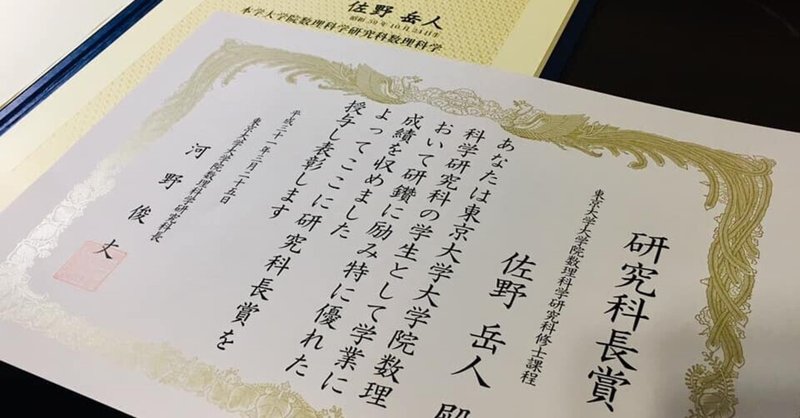 佐野 岳人
本学大学院数理科学研究科数理科学
研究科長賞
東京大学大学院数理科学研究科修士課程
佐野 岳人 殿
あなたは東京大学大学院数理
科学研究科の学生として学業に
おいて研鑽に励み特に優れた
成績を収めました
よってここに研究科長賞を
授与し表彰します
平成三十一年三月二十五日
東京大学大学院数理科学研究科長
河野俊丈